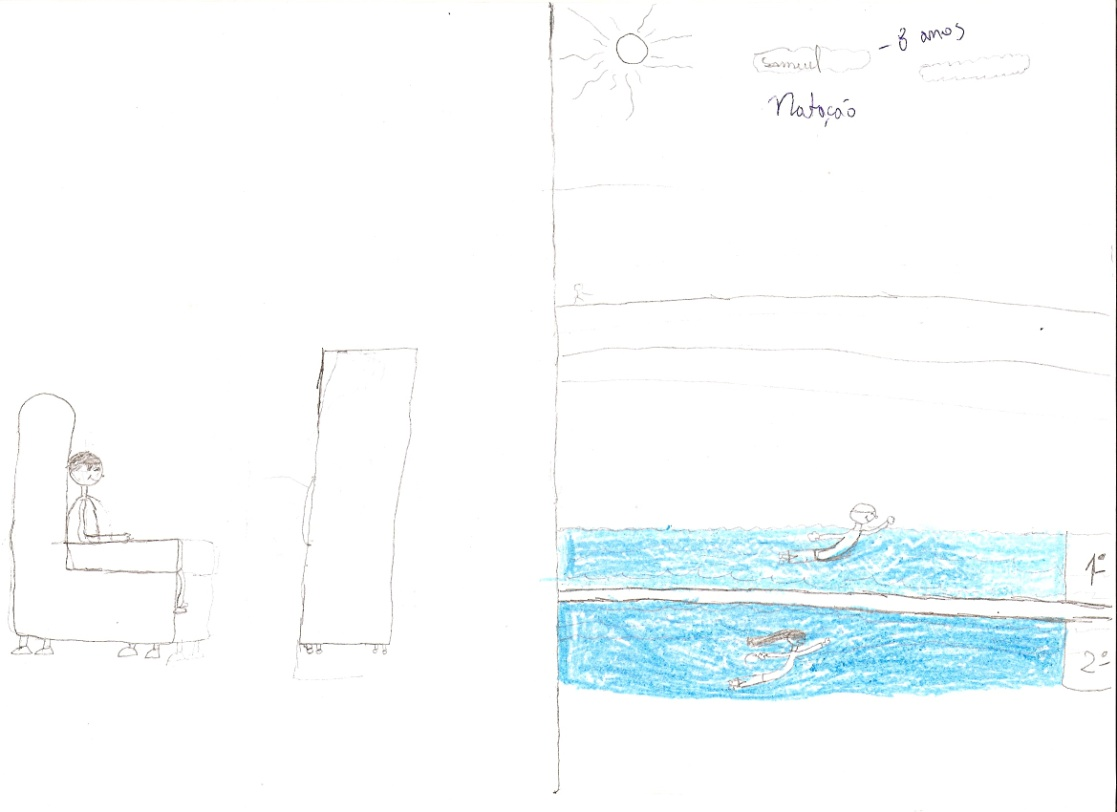 Samuel - 8 anos
Natação
1º
2º